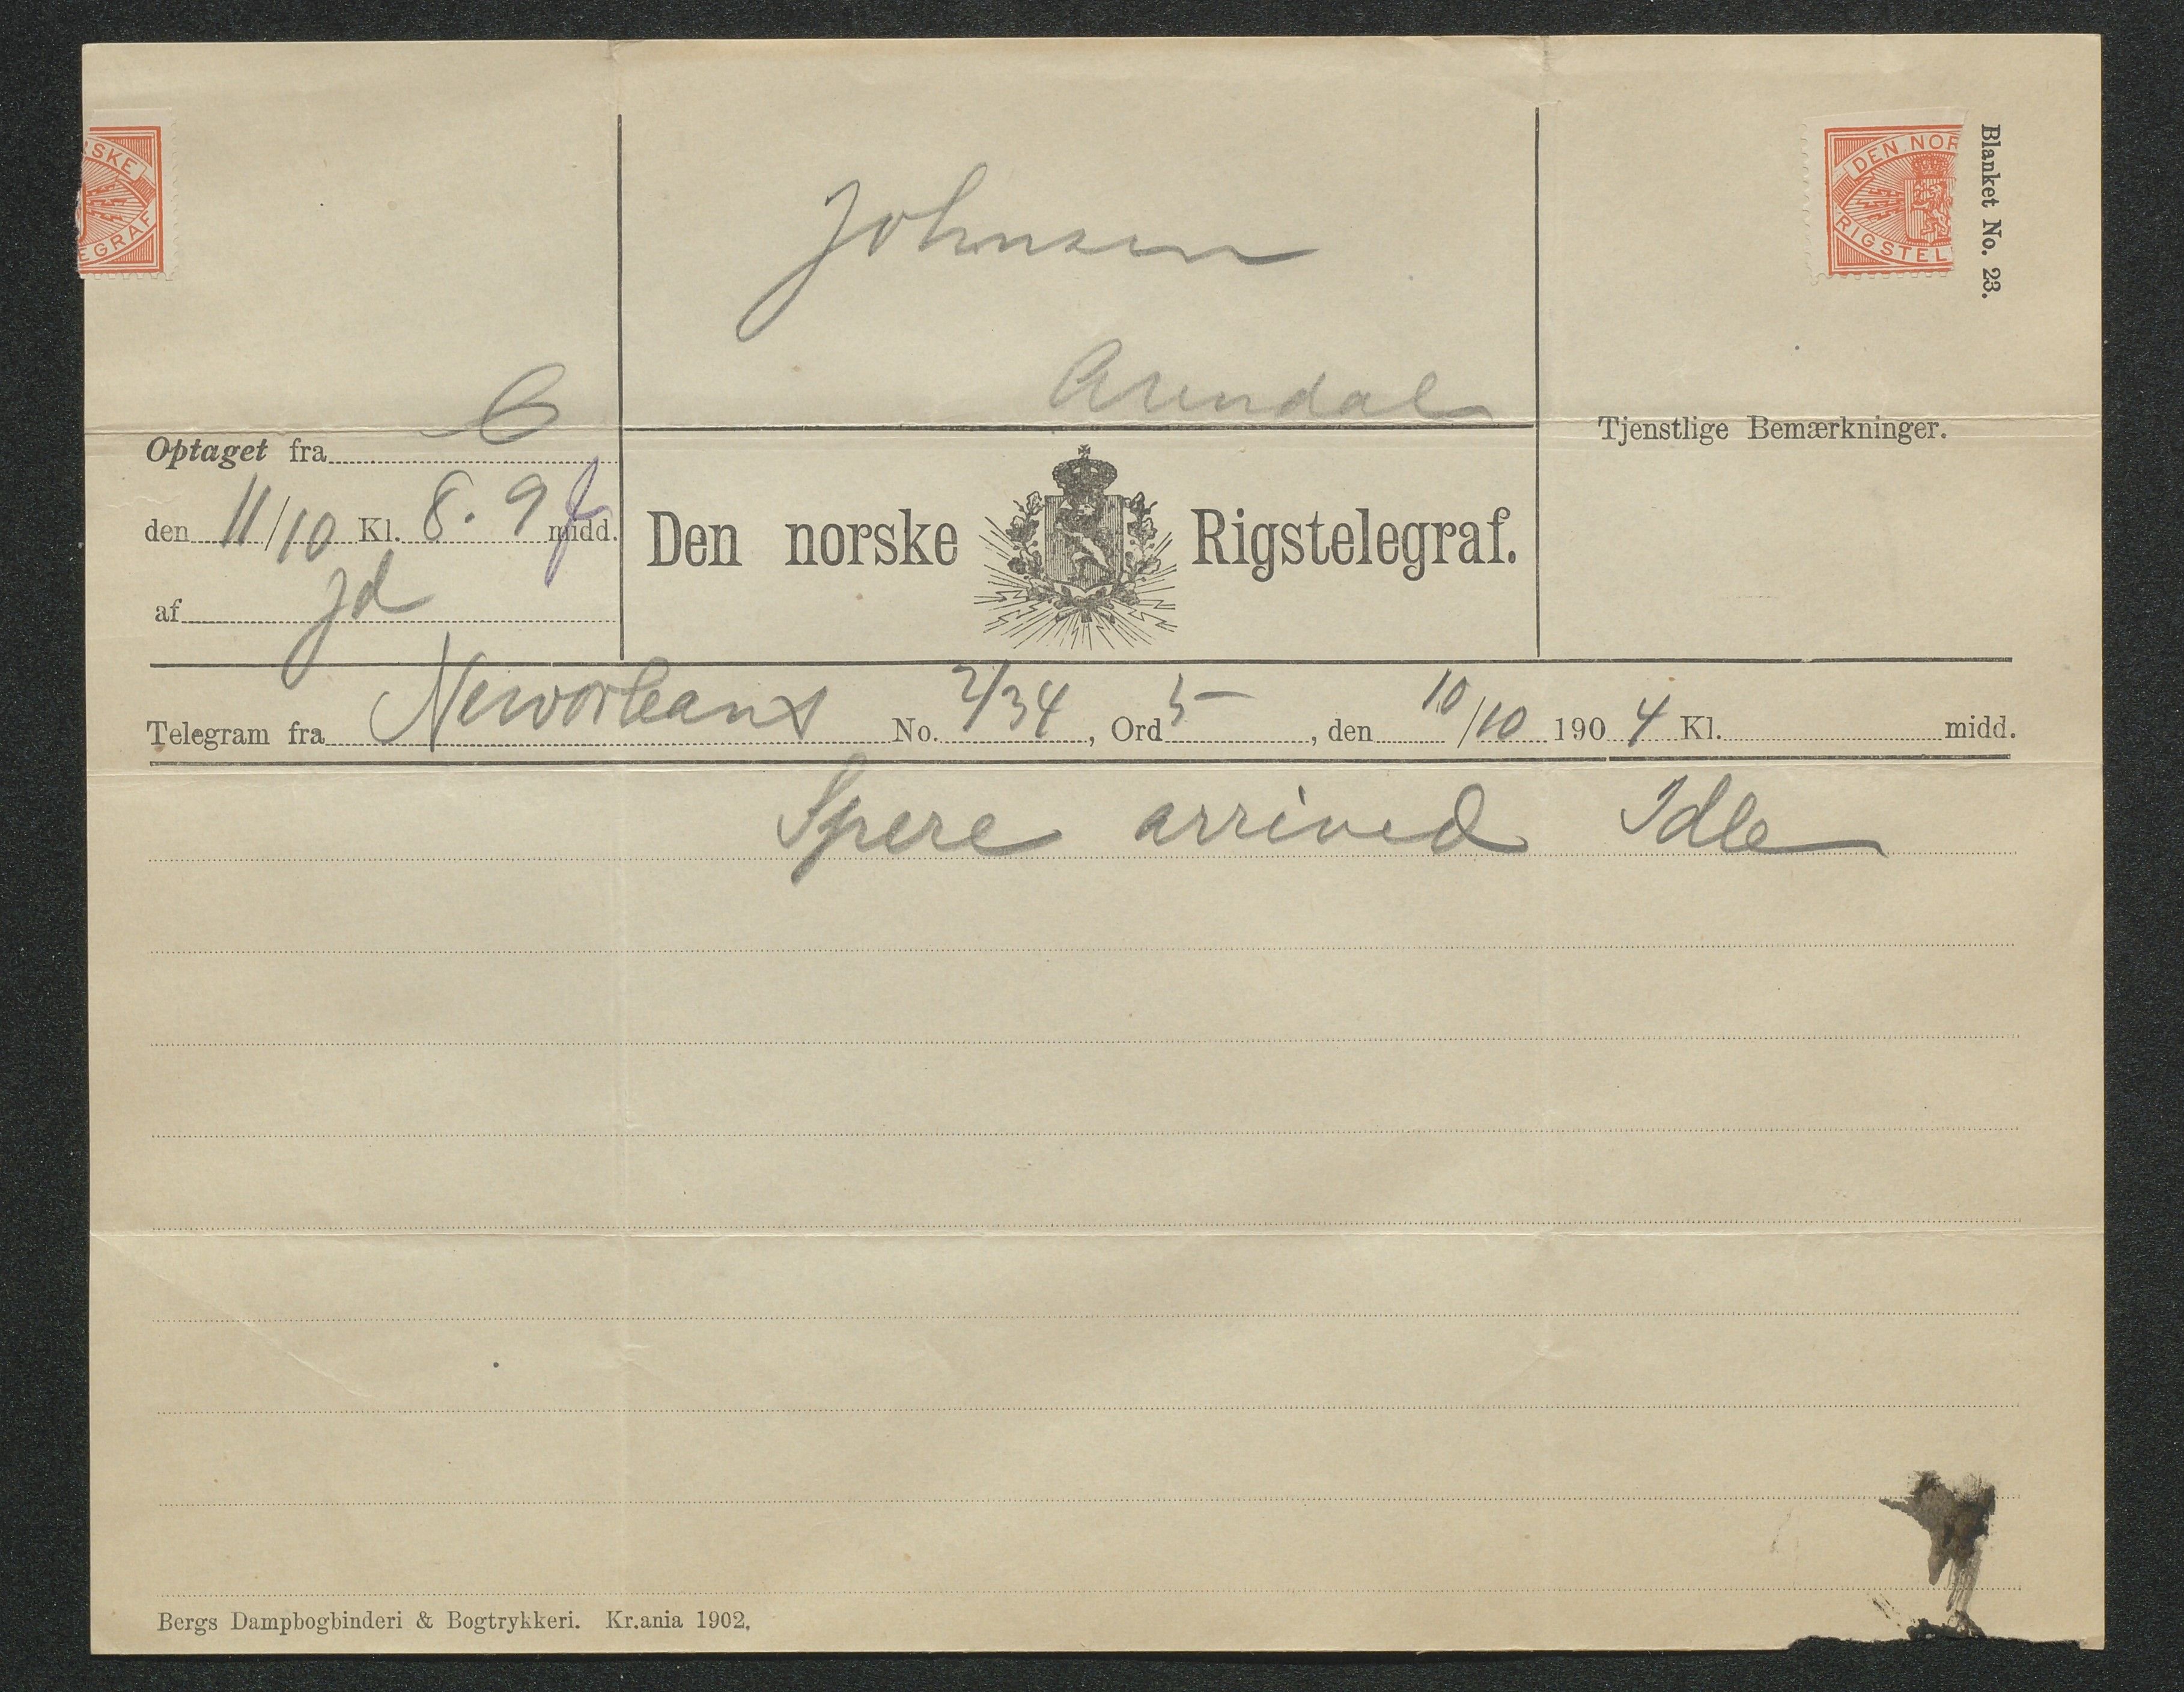 RSKE
EGRAF
DEN NOR
RIGSTEL
Blanket No. 23.
Johnsen
Arendal
Optaget fra C
den 11/10 Kl. 8.9 f midd.
af Jd
Den norske Rigstelegraf.
Tjenstlige Bemærkninger.
Telegram fra Neworleans No. 2/34, Ord 5, den 10/10 1904 Kl. midd.
Spere arrived Idle
Bergs Dampbogbinderi & Bogtrykkeri. Kr.ania 1902.